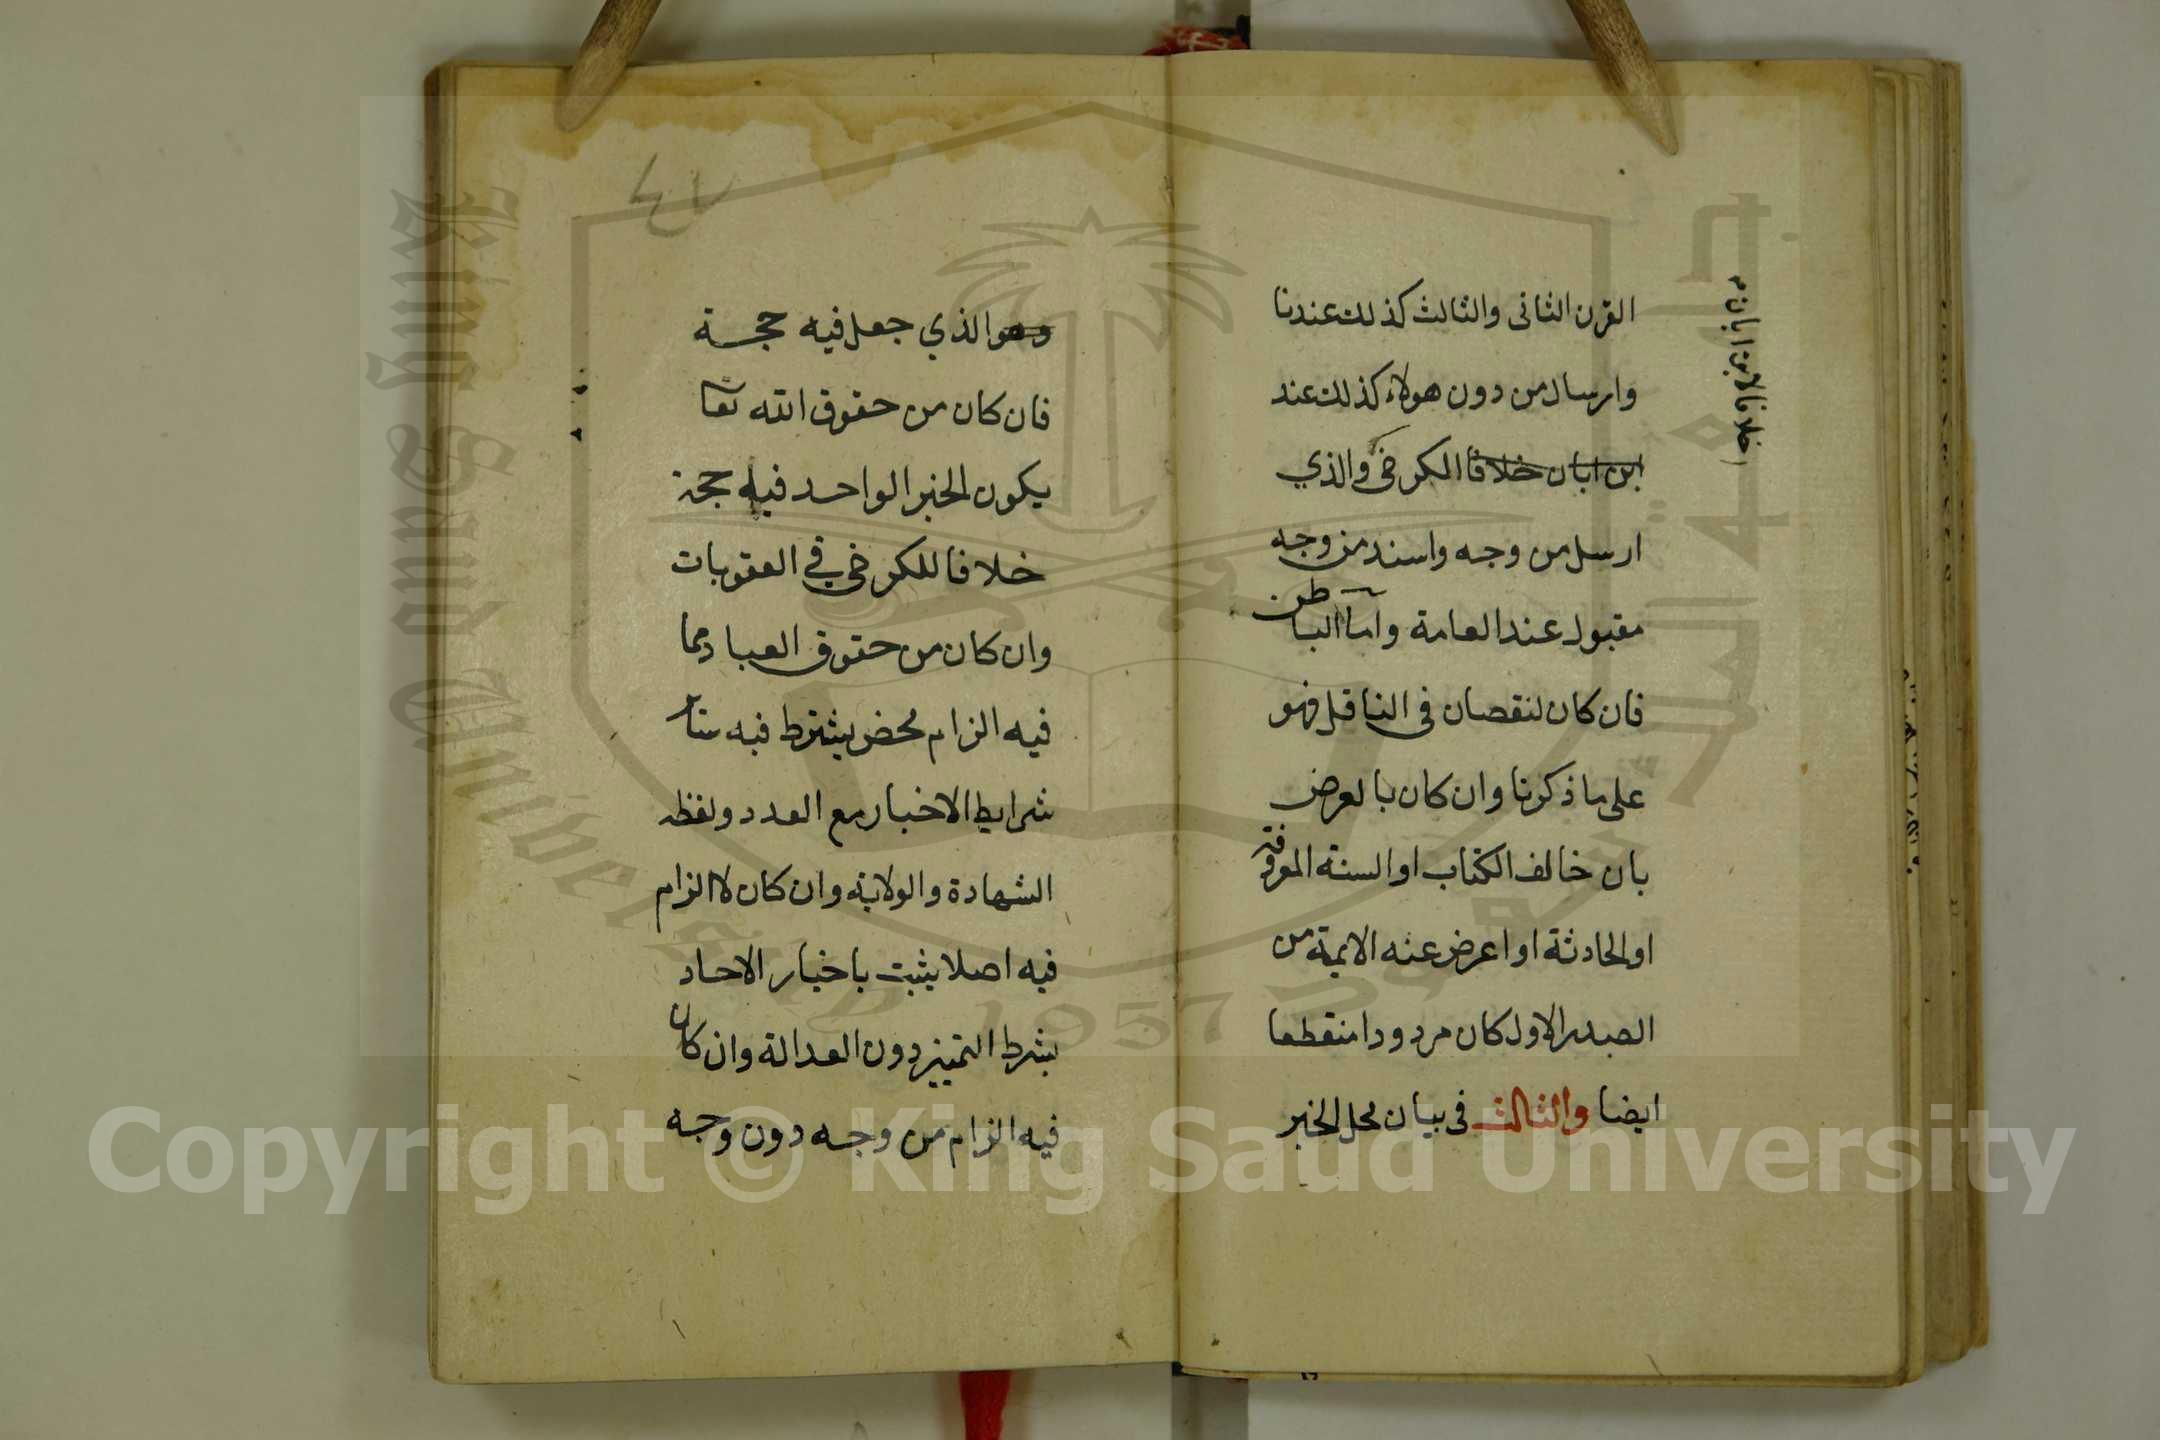 القرن الثانى والثالث كذلك عندنا
وارسال من دون هولاء كذلك عند
ابن ابان خلافا الكرخى والذي
ارسل من وجه واسند من وجه
مقبول عند العامة واما الباطن
فان كان لنقصان فى الناقل فهو
على ما ذكرنا وان كان بالعرض
بان خالف الكتاب او السنة المعروفة
او الحادثة او اعرض عنه الايمة من
الصدر الاول كان مردودا منقطعا
ايضا والثالث فى بيان محل الخبر
خلافا لابن ابان
٤٧
وهو الذي جعل فيه حجة
فان كان من حقوق الله تعا
يكون الخبر الواحد فيه حجة
خلافا للكرخى في العقوبات
وان كان من حقوق العباد مما
فيه الزام محض يشترط فيه سائر
شرايط الاخبار مع العدد ولفظه
الشهادة والولاية وان كان لا الزام
فيه اصلا يثبت باخبار الاحاد
بشرط التمييز دون العدالة وان كان
فيه الزام من وجه دون وجه
King Saud University
1957
Copyright © King Saud University